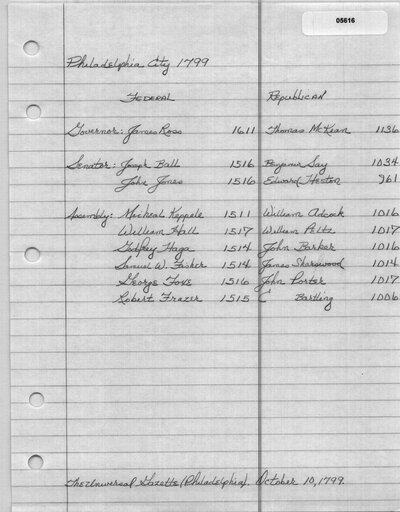 05616
Philadelphia City 1799
FEDERAL REPUBLICAN
Governor: James Ross 1611 Thomas McKean 1136
Senator: Joseph Ball 1516 Benjamin Say 1034
John Jones 1516 Edward Heston 961
Assembly: Micheal Keppele 1511 William Adcock 1016
William Hall 1517 William Peltz 1017
Godfrey Haga 1514 John Barker 1016
Samuel W. Fisher 1514 James Sharswood 1014
George Fox 1516 John Porter 1017
Robert Frazer 1515 C Bartling 1006
The Universal Gazette (Philadelphia). October 10, 1799.